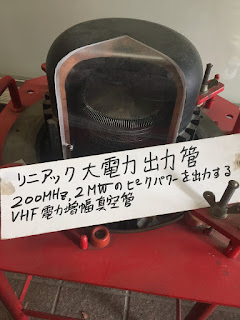 リニアック 大電力出力管
200MHz, 2MWのピークパワーを出力する
VHF電力増幅真空管